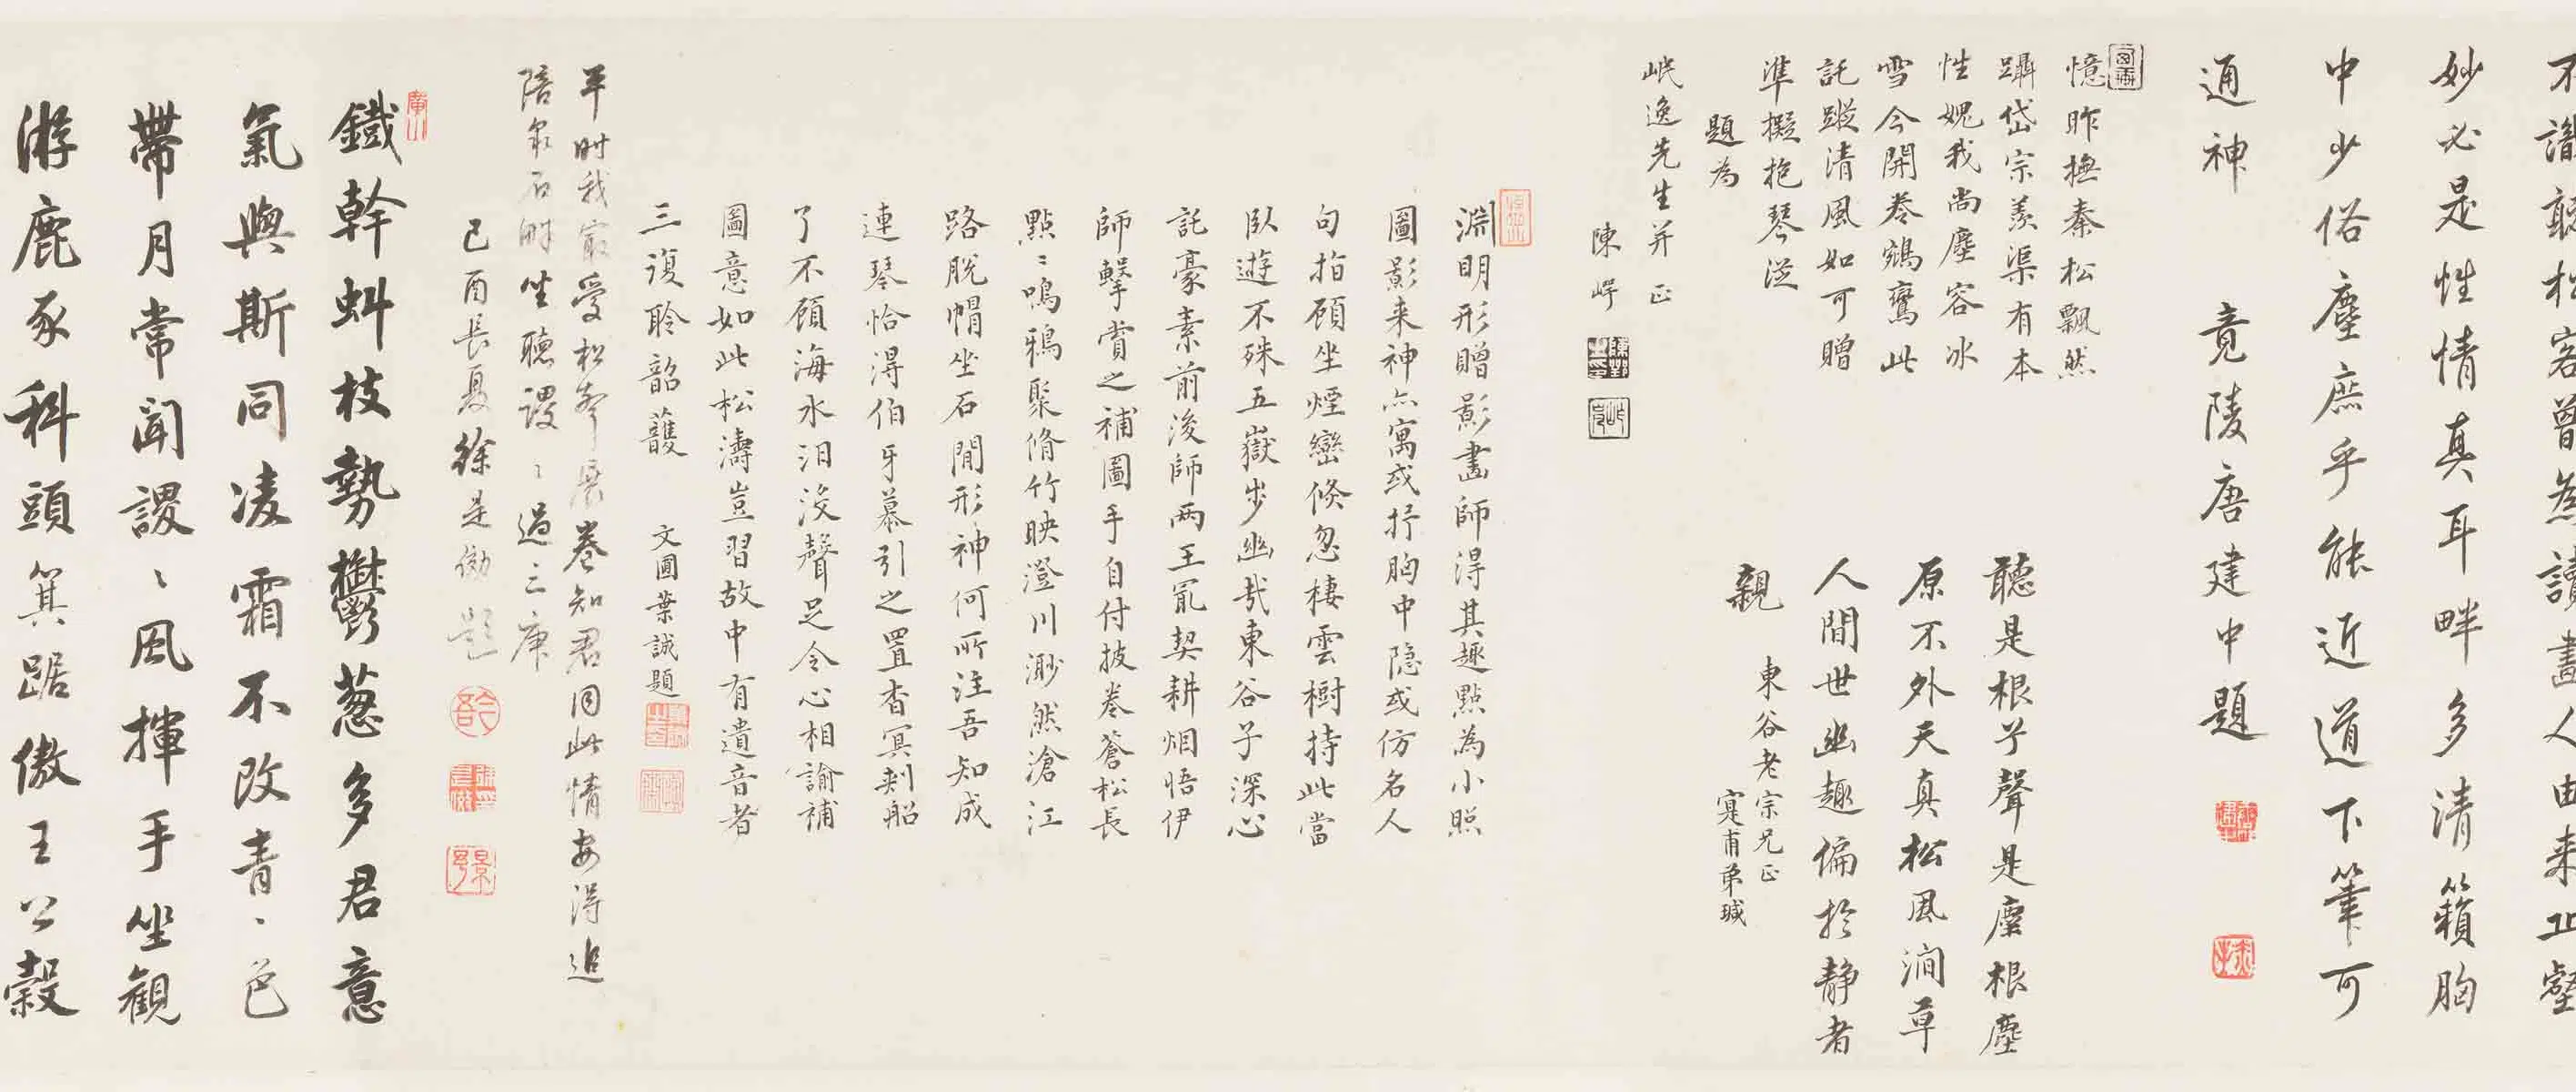 不識聽松客曾無讀畫人由来丘壑
妙必是性情真耳畔多清籟胸
中少俗塵庶乎能近道下筆可
通神　竟陵唐建中題
憶昨撫秦松飄然
躡岱宗羨渠有本
性媿我尚塵容冰
雪今開卷鵷鸞此
託蹤清風如可贈
準擬抱琴從
題為
岷逸先生并正
陳崿
聽是根兮聲是塵根塵
原不外天真松風澗草
人間世幽趣偏於静者
親　東谷老宗兄正
寔甫弟瑊
淵明形贈影畫師得其趣點為小照
圖影来神亦寓或抒胸中隐或仿名人
句指顧坐煙巒倏忽棲雲樹持此當
臥遊不殊五嶽步幽哉東谷子深心
託豪素前後師兩王冣契耕烟悟伊
師擊賞之補圖手自付披卷蒼松長
點〻鳴鴉聚脩竹映澄川渺然滄江
路脫帽坐石間形神何所注吾知成
連琴恰得伯牙慕引之置杳冥刺船
了不顧海水汩没聲足令心相諭補
圖意如此松濤豈習故中有遺音者
三復聆韶頀　文圃葉誠題
平時我最受松聲展卷知君同此情安得追
陪泉石畔坐聽謖〻過三庚
己酉長夏徐是俲題
鐵幹蚪枝勢鬱葱多君意
氣與斯同凌霜不改青〻色
帶月常聞謖〻風揮手坐観
游鹿豕科頭箕踞傲王公穀